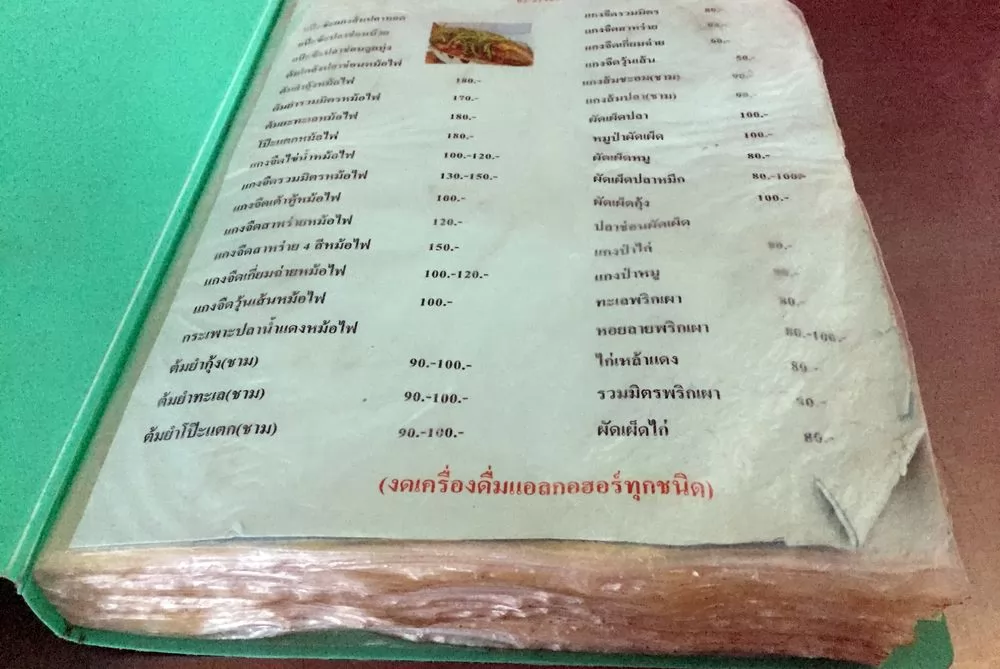 แป๊ะซะปลาช่อนนึ่ง
ต้มยำกุ้งหม้อไฟ 180.-
ต้มยำรวมมิตรหม้อไฟ 170.-
ต้มยำทะเลหม้อไฟ 180.-
โป๊ะแตกหม้อไฟ 180.-
แกงจืดไข่น้ำหม้อไฟ 100.-120.-
แกงจืดรวมมิตรหม้อไฟ 130.-150.-
แกงจืดเต้าหู้หม้อไฟ 100.-
แกงจืดสาหร่ายหม้อไฟ 120.-
แกงจืดสาหร่าย 4 สีหม้อไฟ 150.-
แกงจืดเกี่ยมฉ่ายหม้อไฟ 100.-120.-
แกงจืดวุ้นเส้นหม้อไฟ 100.-
กระเพาะปลาน้ำแดงหม้อไฟ
ต้มยำกุ้ง(ชาม) 90.-100.-
ต้มยำทะเล(ชาม) 90.-100.-
ต้มยำโป๊ะแตก(ชาม) 90.-100.-
แกงจืดรวมมิตร 80.-
แกงจืดสาหร่าย
แกงจืดเกี่ยมฉ่าย 60.-
แกงจืดวุ้นเส้น 50.-
แกงส้มชะอม(ชาม) 90.-
แกงส้มปลา(ชาม) 90.-
ผัดเผ็ดปลา 100.-
หมูป่าผัดเผ็ด 100.-
ผัดเผ็ดหมู 80.-
ผัดเผ็ดปลาหมึก 80.-100.-
ผัดเผ็ดกุ้ง 100.-
ปลาช่อนผัดเผ็ด
แกงป่าไก่ 80.-
แกงป่าหมู 80.-
ทะเลพริกเผา 80.-
หอยลายพริกเผา 80.-100.-
ไก่เหล้าแดง 80.-
รวมมิตรพริกเผา 80.-
ผัดเผ็ดไก่ 80.-
(งดเครื่องดื่มแอลกอฮอร์ทุกชนิด)